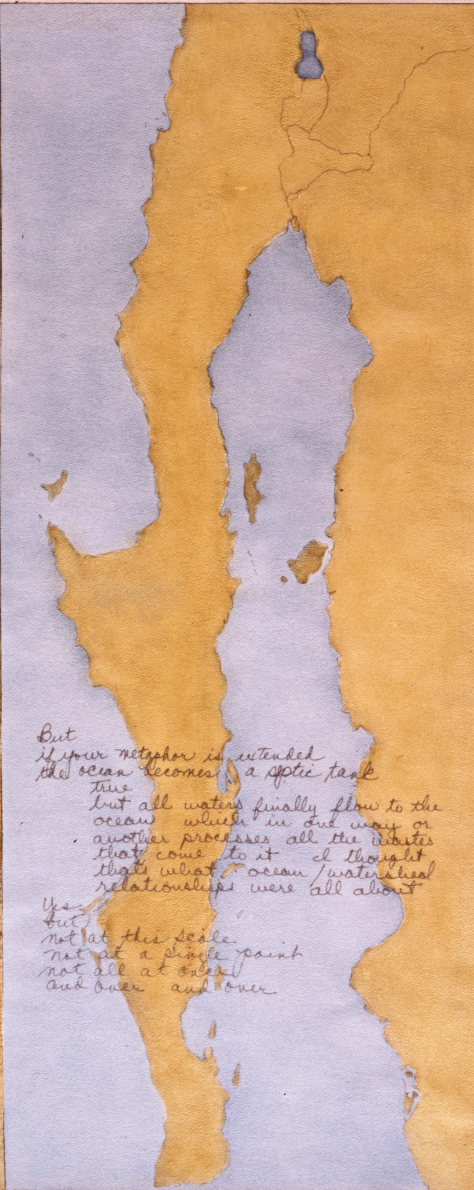 But
if your metaphor is extended
the ocean becomes a septic tank
true
but all waters finally flow to the
ocean which in one way or
another processes all the wastes
that come to it I thought
thats what ocean/watershed
relationships were all about
Yes
but
not at this scale
not at a single point
not all at once
and over and over